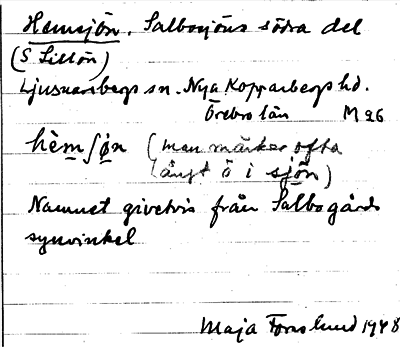 Hemsjön. Salbosjöns södra del
(S Sillön)
Ljusnarsbergs sn. Nya Kopparbergs hd.
Örebro län M 26
hèm∫ön (man märker ofta
långt ö i sjön)
Namnet givetvis från Salbogårds
synvinkel
Maja Forslund 1948